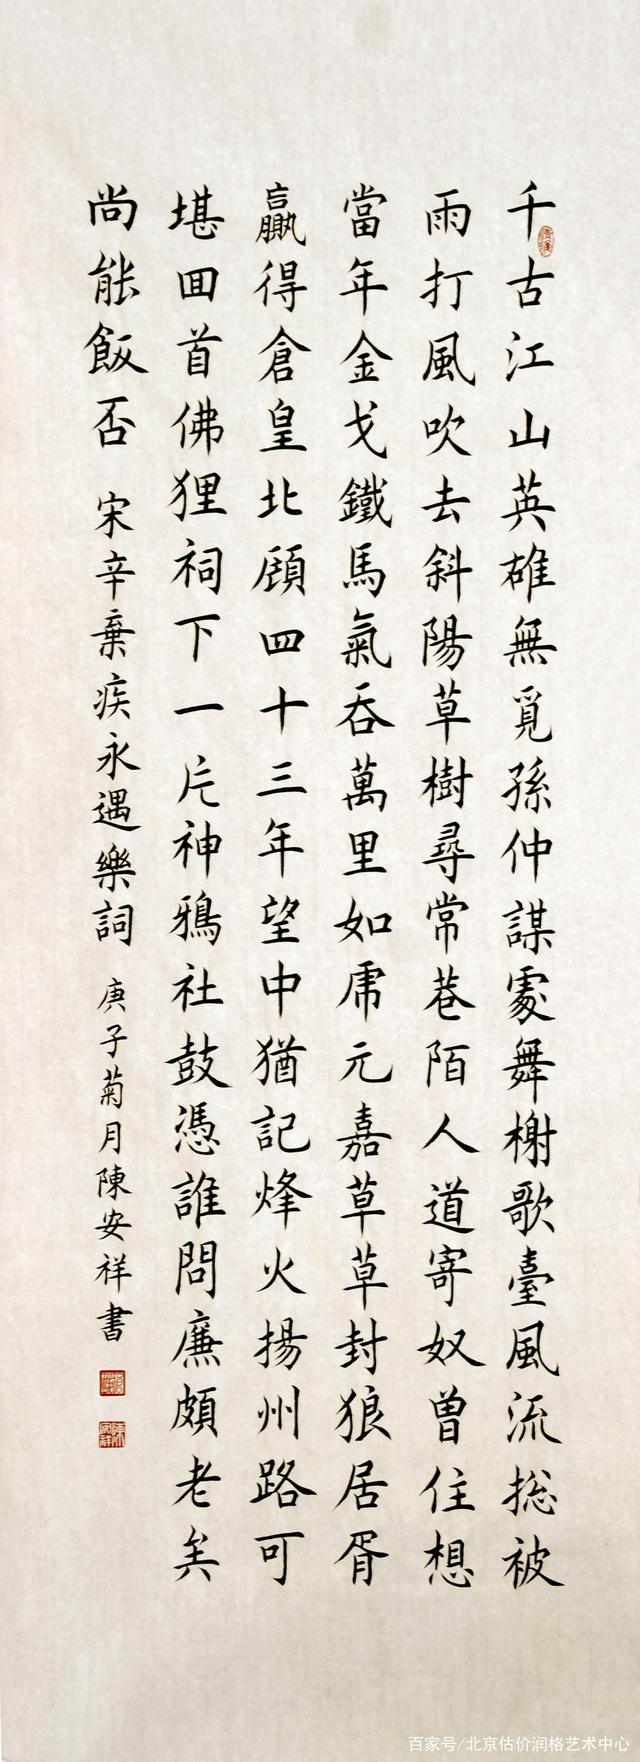 千古江山英雄無覓孫仲謀處舞榭歌臺風流總被
雨打風吹去斜陽草樹尋常巷陌人道寄奴曾住想
當年金戈鐵馬氣吞萬里如虎元嘉草草封狼居胥
贏得倉皇北顧四十三年望中猶記烽火揚州路可
堪回首佛狸祠下一片神鴉社鼓憑誰問廉頗老矣
尚能飯否 宋辛棄疾永遇樂詞 庚子菊月陳安祥書
百家号/北京估价润格艺术中心